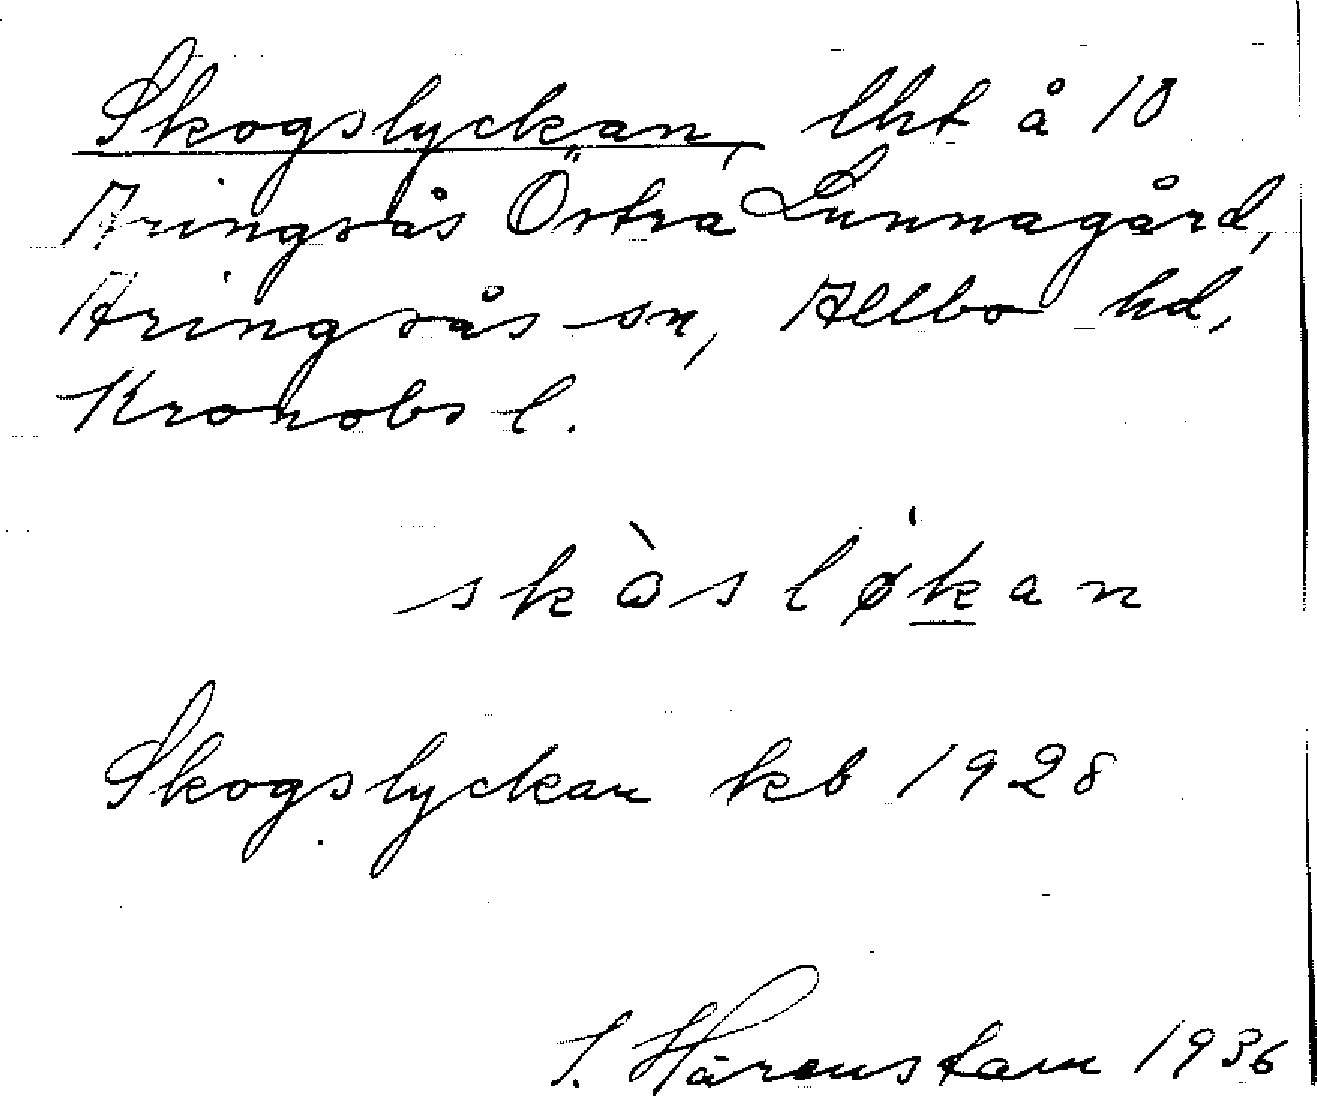 Skogslyckan, lht å 10
Aringsås Östra Lunnagård,
Aringsås sn, Allbo hd,
Kronobs l.
skòsløkan
Skogslyckan kb 1928
S. Härenstam 1936